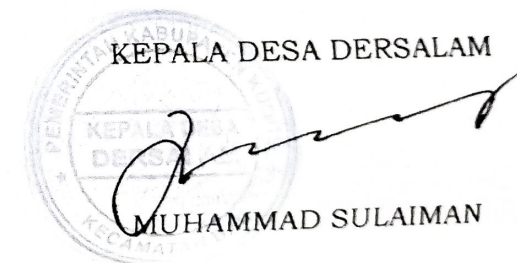 KEPALA DESA DERSALAM
PEMERINTAH KABUPATEN
KEPALA DESA
DERSALAM
KECAMATAN
MUHAMMAD SULAIMAN